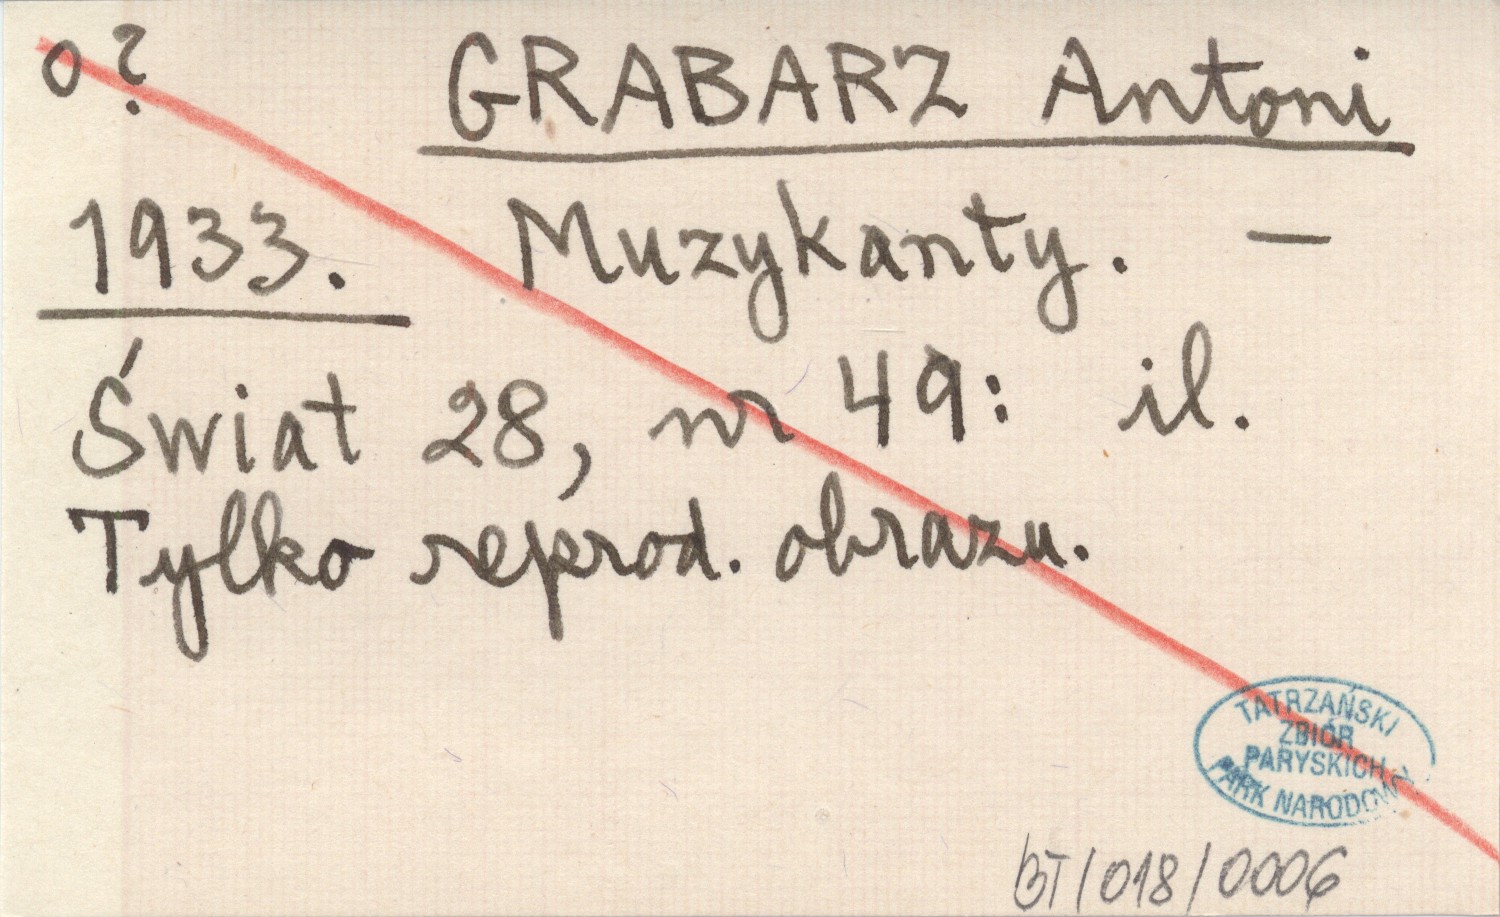 o? GRABARZ Antoni
1933. Muzykanty. –
Świat 28, nr 49: il.
Tylko reprod. obrazu.
TATRZAŃSKI
ZBIÓR
PARYSKICH
PARK NARODOWY
BT/018/0006